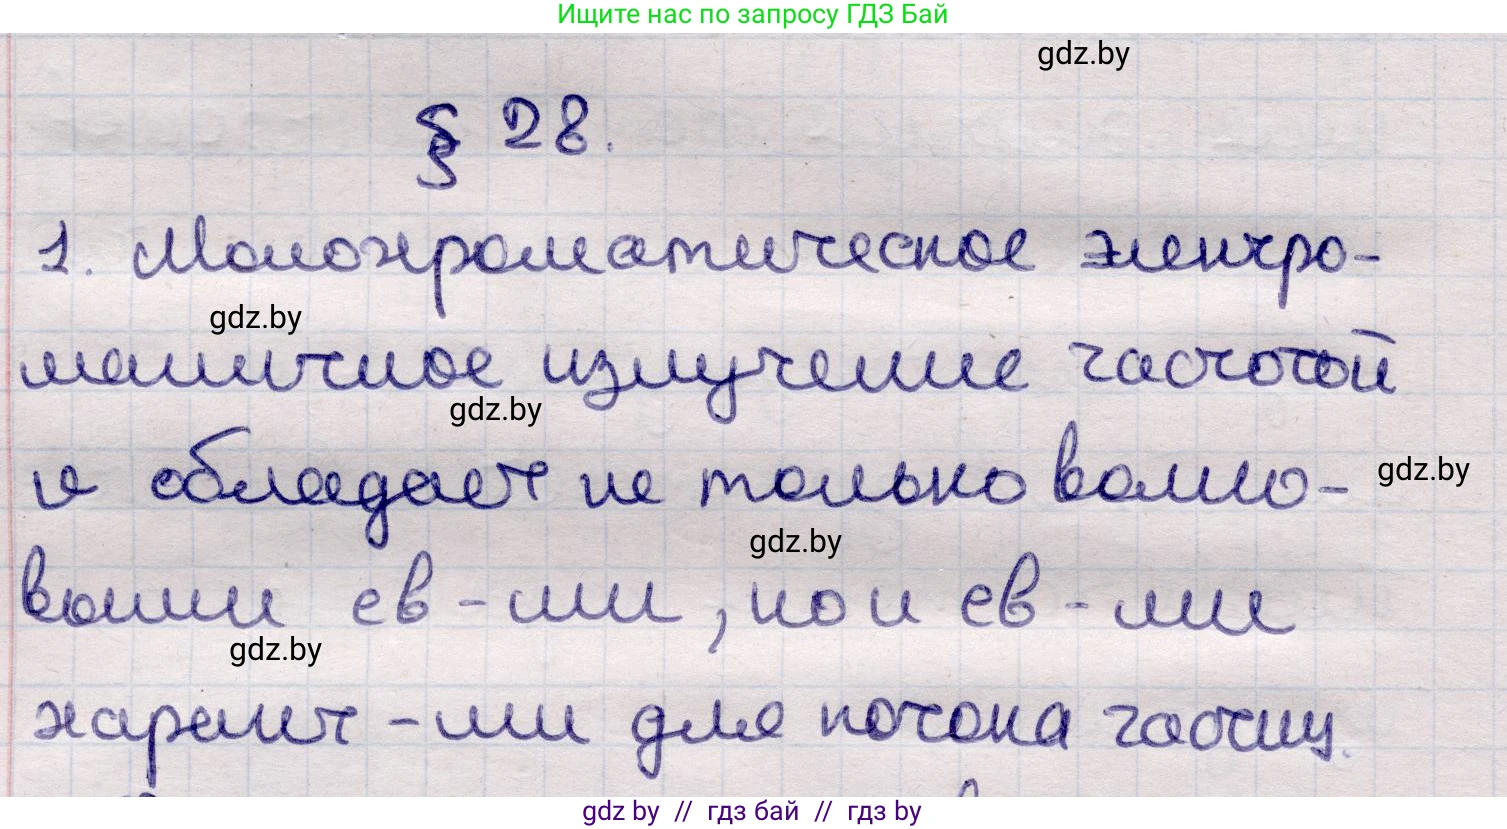 Ищите нас по запросу ГДЗ Бай
gdz.by
§ 28.
1. Монохроматическое электро-
gdz.by
магничное излучение частотой
gdz.by
ν обладает не только волно-
gdz.by
gdz.by
выми св-ми, но и св-ми
gdz.by
характ-ми для потока частиц.
gdz by // гдз бай // гдз by